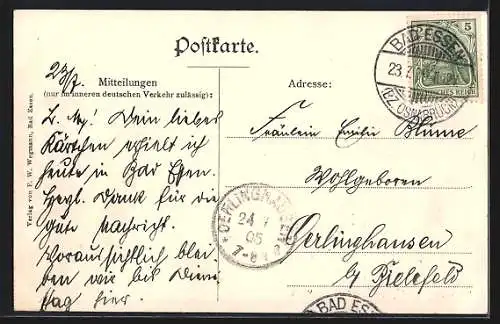 Postkarte.
5
DEUTSCHES REICH
BAD ESSEN
23.7.
(BZ. OSNABRÜCK)
23/7.
Mitteilungen
(nur im inneren deutschen Verkehr zulässig):
Adresse:
L. Dein liebes
Kärtchen erhielt ich
heute in Bad Essen.
Herzl. Dank für die
gute Nachricht.
Voraussichtlich blei
ben wir bis Diens
tag hier.
Fräulein Emilie Blume
Wohlgeboren
Oerlinghausen
b/ Bielefeld
OERLINGHAUSEN
24 7
05
7-8
BAD ES
Verlag von F. W. Wegmann, Bad Essen.